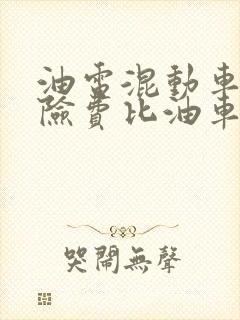 油電混動車
險費比油車
哭鬧無聲